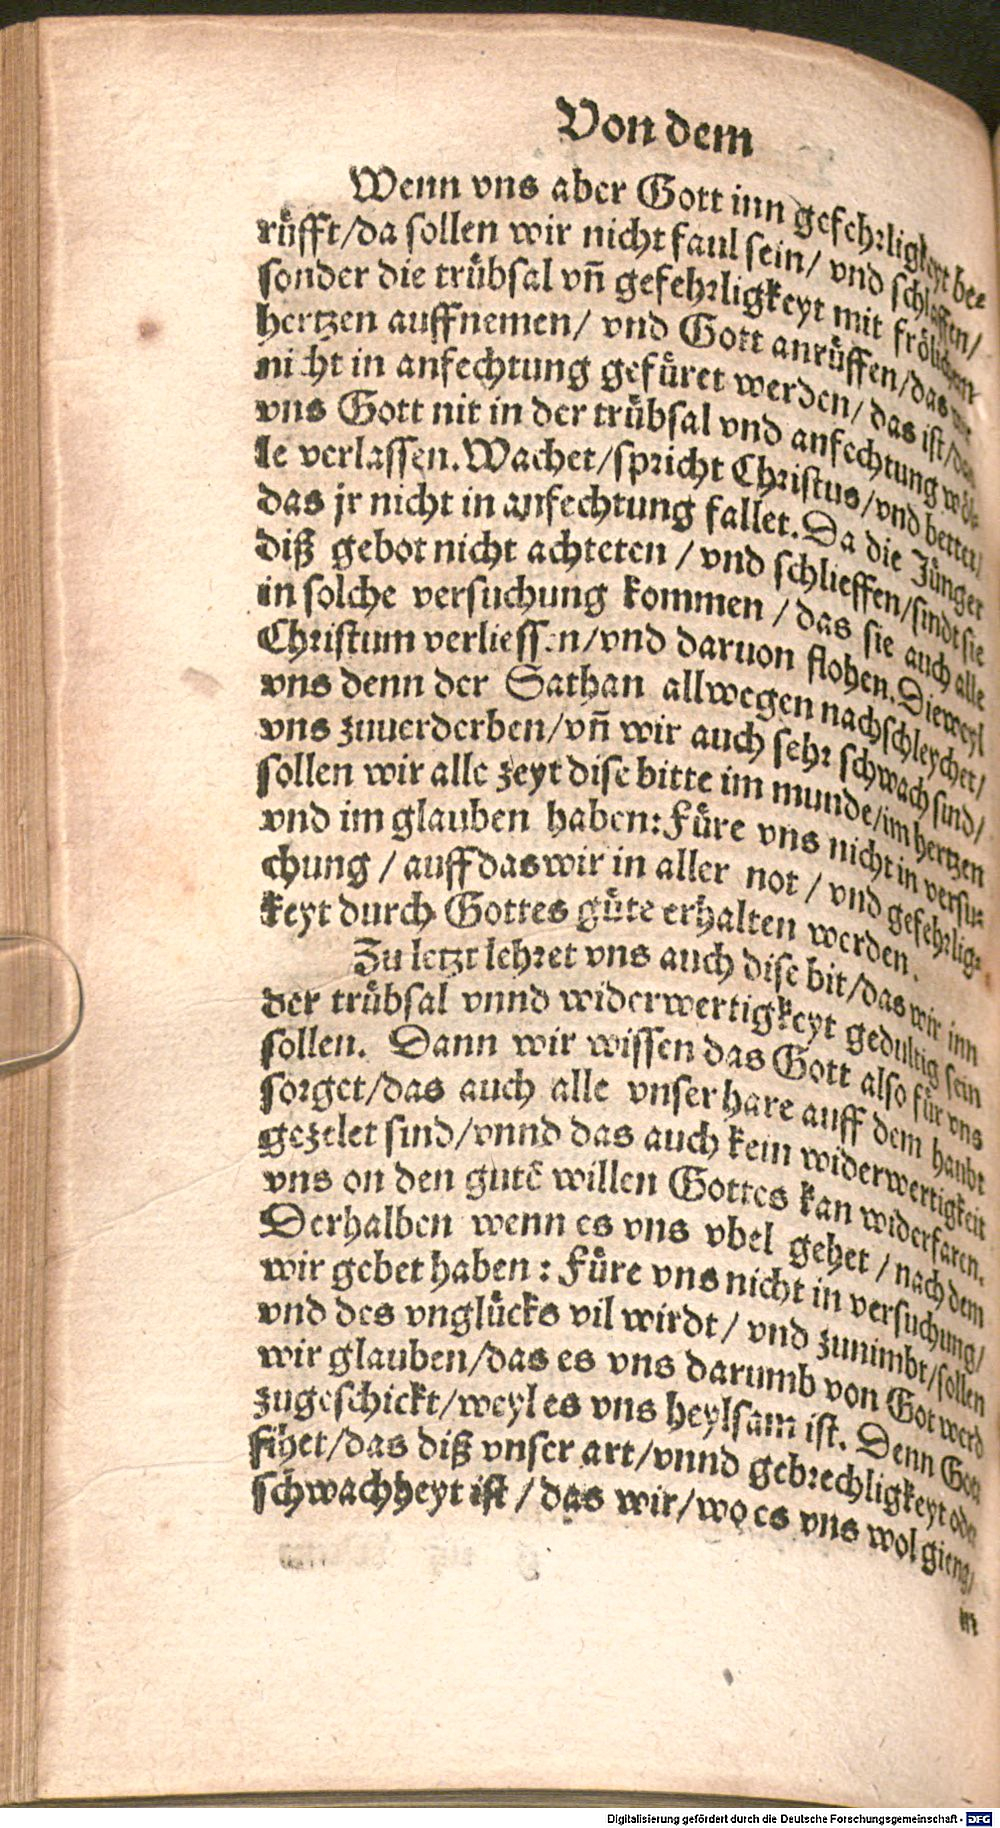 Von dem
Wenn vns aber Gott inn gefehrligkeyt be⸗
rüfft/da sollen wir nicht faul sein/ vnd schlaffen/
sonder die trübsal vñ gefehrligkeyt mit frölichem
hertzen auffnemen/ vnd Gott anrüffen/das wir
nicht in anfechtung gefüret werden/ das ist/das
vns Gott nit in der trübsal vnd anfechtung wöl⸗
le verlassen. Wachet/spricht Christus/vnd bettet/
das jr nicht in anfechtung fallet. Da die Jünger
diß gebot nicht achteten / vnd schlieffen/sindt sie
in solche versuchung kommen / das sie auch alle
Christum verliessen/vnd daruon flohen. Dieweyl
vns denn der Sathan allwegen nachschleychet/
vns zuuerderben/vñ wir auch sehr schwach sind/
sollen wir alle zeyt dise bitte im munde/im hertzen
vnd im glauben haben: Füre vns nicht in versu⸗
chung / auff das wir in aller not / vnd gefehrlig⸗
keyt durch Gottes güte erhalten werden.
Zu letzt lehret vns auch dise bit/das wir inn
der trübsal vnnd widerwertigkeyt gedultig sein
sollen. Dann wir wissen das Gott also für vns
sorget/das auch alle vnser hare auff dem haubt
gezelet sind/vnnd das auch kein widerwertigkeit
vns on den gutē willen Gottes kan widerfaren.
Derhalben wenn es vns vbel gehet / nach dem
wir gebet haben : Füre vns nicht in versuchung/
vnd des vnglücks vil wirdt/ vnd zunimbt/sollen
wir glauben/das es vns darumb von Got werd
zugeschickt/weyl es vns heylsam ist. Denn Gott
sihet/das diß vnser art/vnnd gebrechligkeyt oder
schwachheyt ist / das wir/wo es vns wol gieng/
in
Digitalisierung gefördert durch die Deutsche Forschungsgemeinschaft - DFG